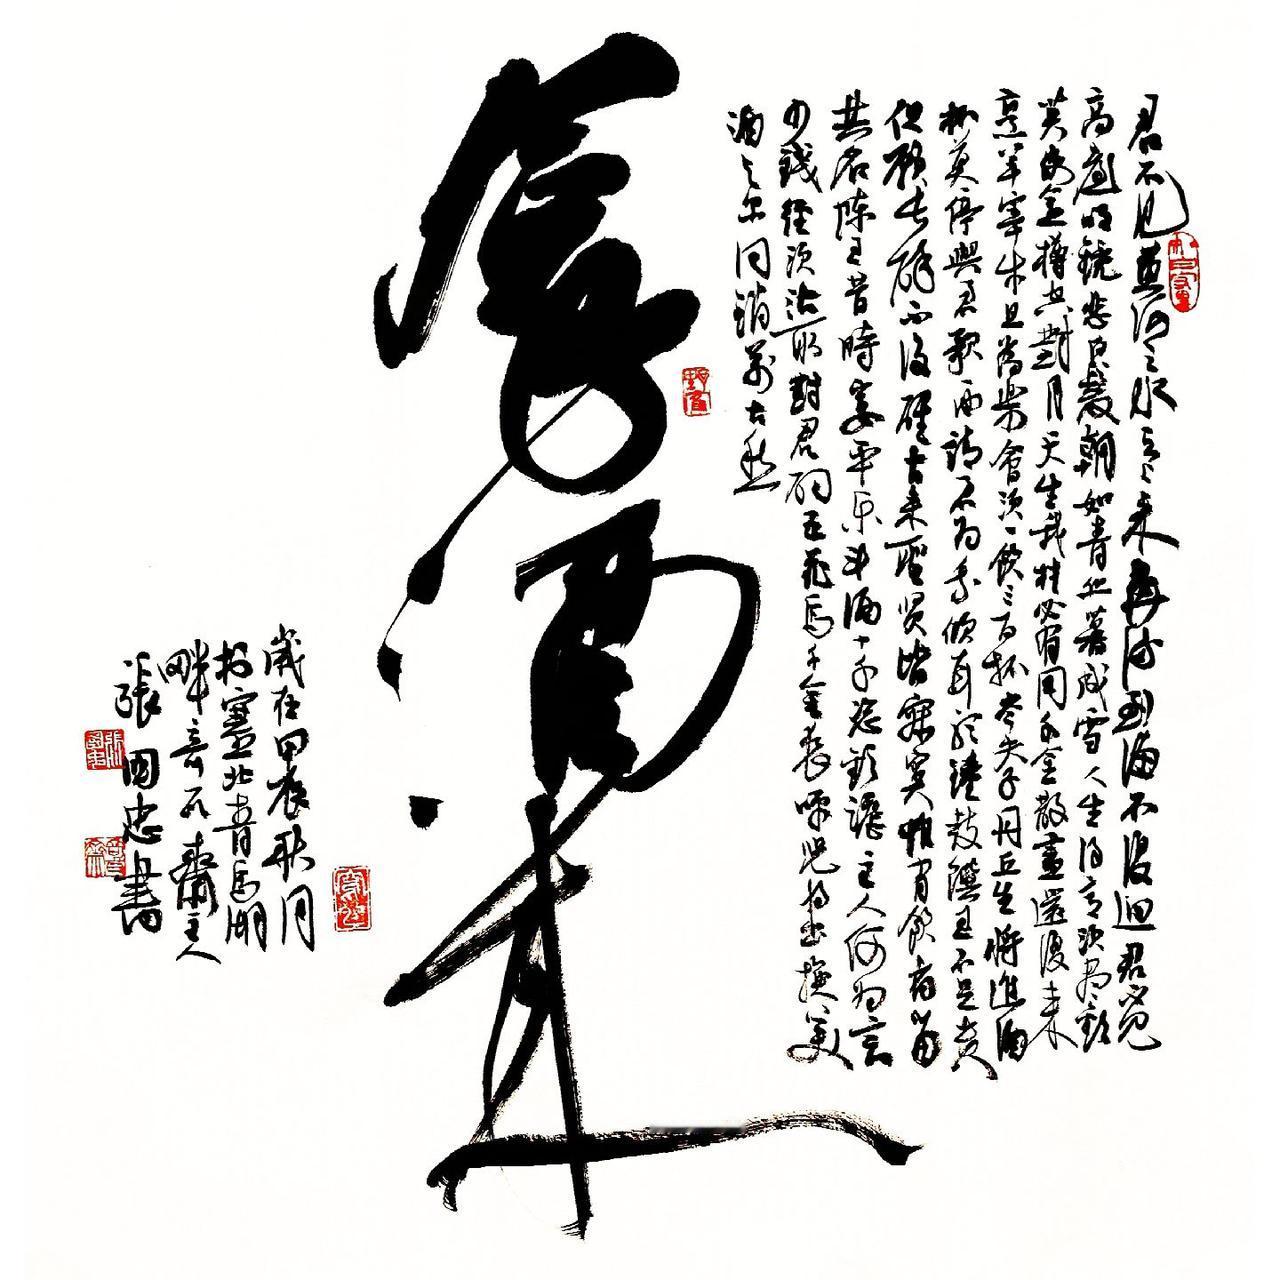 君不见黄河之水天上来奔流到海不復迴君不見
高堂明鏡悲白髮朝如青丝暮成雪人生得意須尽歡
莫使金樽空對月天生我材必有用千金散盡還復来
烹羊宰牛且為樂會須一飲三百杯岑夫子丹丘生將進酒
杯莫停與君歌一曲請君为我傾耳聽鐘鼓饌玉不足贵
但願長醉不復醒古来聖贤皆寂寞惟有飲者留
其名陈王昔時宴平乐斗酒十千恣歡謔主人何为言
少錢径須沽取對君酌五花馬千金裘呼兒将出换美
酒与尔同銷萬古愁
歲在甲辰秋月
於塞北青馬湖
畔奇石齋主人
張國忠書